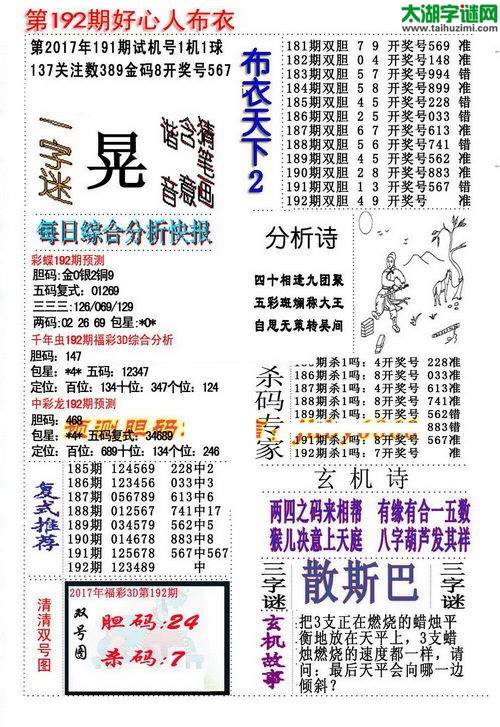 太湖字谜网
http://www.taihuzimi.com
第192期好心人布衣
第2017年191期试机号1机1球
137关注数389金码8开奖号567
一字迷
晃
猜笔画
含蕴
谐音
每日综合分析快报
彩蝶192期预测
胆码:金0银2铜9
五码复式: 01269
三三三:126/069/129
两码:02 26 69 包星:*0*
千年虫192期福彩3D综合分析
胆码: 147
包星: *4* 五码: 12347
定位: 百位: 134十位: 347个位: 124
中彩龙192期预测
胆码: 468
包星: *4* 五码复式: 34689
定位: 百位: 689十位: 134个位: 246
复式推荐
185期 124569 228中2
186期 124578 033中5
187期 056789 613中6
188期 012567 741中17
189期 034579 562中5
190期 015678 883中8
191期 125678 567中567
192期 123489 中
清清双号图
2017年福彩3D第192期
双号图
胆码:24
杀码:7
布衣天下2
181期双胆 7 9 开奖号569 准
182期双胆 0 4 开奖号148 准
183期双胆 5 7 开奖号994 错
184期双胆 5 8 开奖号899 准
185期双胆 4 5 开奖号228 错
186期双胆 2 5 开奖号033 错
187期双胆 6 7 开奖号613 准
188期双胆 5 6 开奖号741 错
189期双胆 4 5 开奖号562 准
190期双胆 2 8 开奖号883 准
191期双胆 1 3 开奖号567 错
192期双胆 4 9 开奖号 准
分析诗
四十相逢九团聚
五彩斑斓称大王
自思无策转吴间
杀码专家
185期杀1吗: 4开奖号 228准
186期杀1吗: 8开奖号 033准
187期杀1吗: 4开奖号 613准
188期杀1吗: 8开奖号 741准
189期杀1吗: 5开奖号 562错
883错
191期杀1吗: 8开奖号 567准
192期杀1吗: 7开奖号 准
玄机诗
两四之码来相帮 有缘有合一五数
猴儿决意上天庭 八字葫芦发其祥
三字谜
散斯巴
三字谜
玄机故事
把3支正在燃烧的蜡烛平
衡地放在天平上,3支蜡
烛燃烧的速度都一样,请
问:最后天平会向哪一边
倾斜?